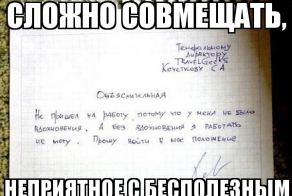 СЛОЖНО СОВМЕЩАТЬ,
Генеральному
директору
TRAVELGeeks
Кочеткову С А
Объяснительная
Не пришел на работу потому что у меня не было
вдохновения, А без вдохновения я работать
не могу. Прошу войти в мое положение
НЕПРИЯТНОЕ С БЕСПОЛЕЗНЫМ